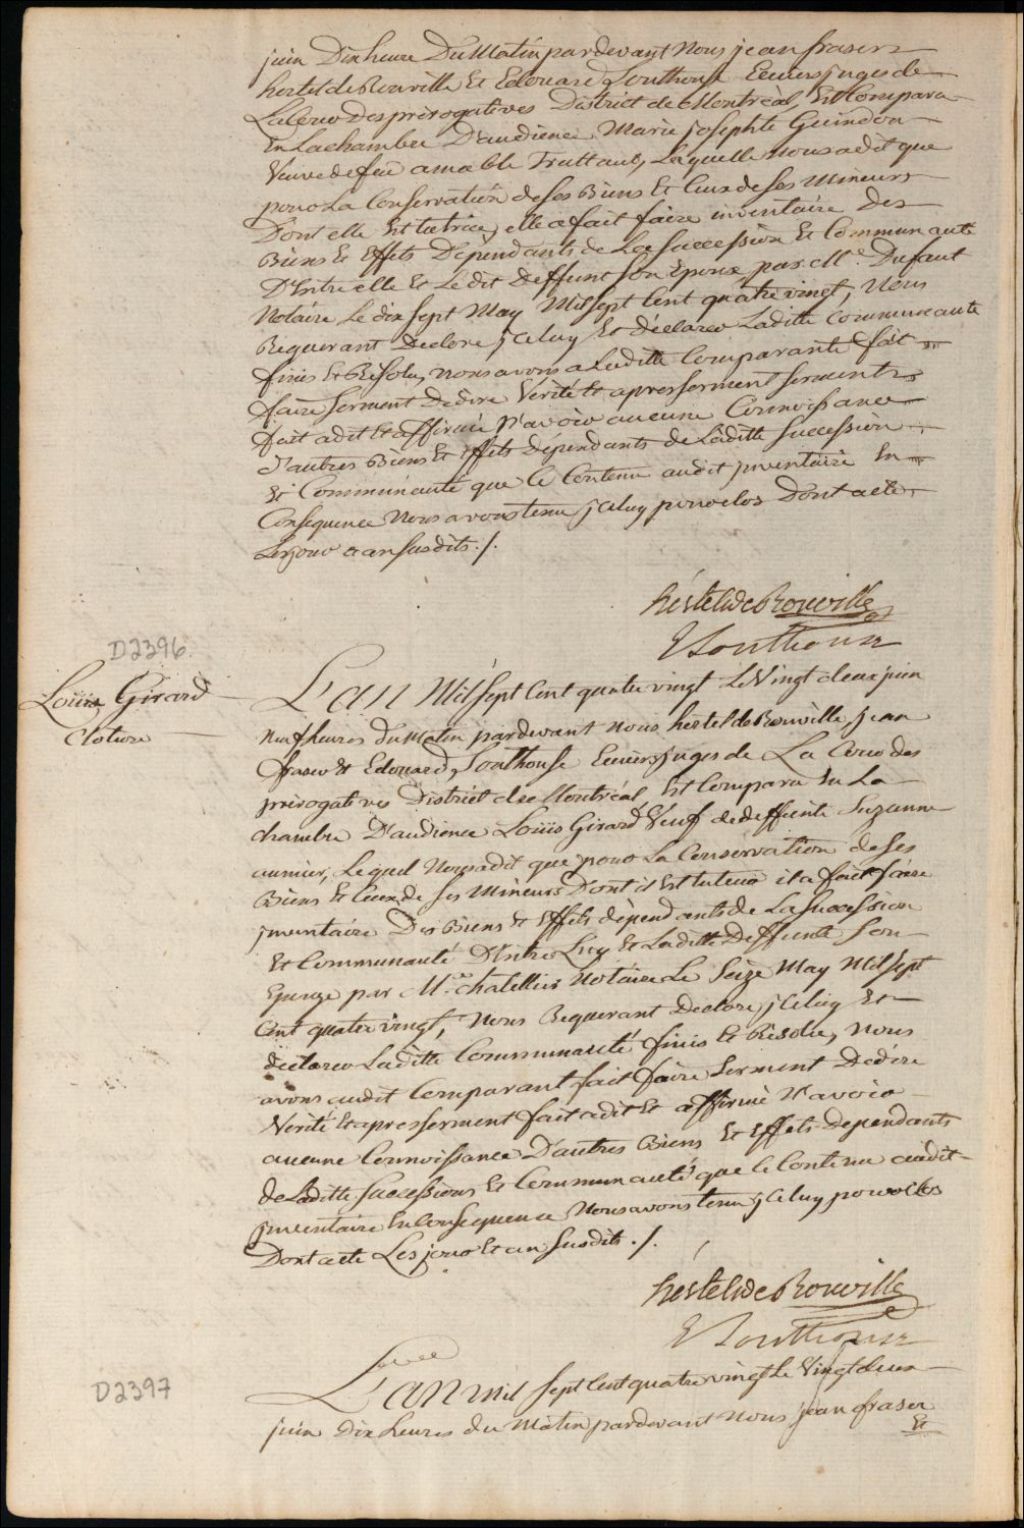 juin Dix heure Du Matin pardevant Nous jean fraser
hertel de Rouville Et Edouard Southouse Ecuiers juges de
La Cour des prérogatives District de Montréal, Est Comparu
En La chambre D'audience Marie josephte Guindon
Veuve de feu amable Truttaut, Laquelle Nous a dit que
pour La Conservation de ses Biens Et Ceux de ses Mineurs
Dont elle Est tutrice, elle a fait faire inventaire Des
Biens Et Effets Dépendants de La Succession Et Communauté
D'Entre elle Et Le dit Deffunt son Epoux par Me. Dufaut
Notaire Le dix sept May Mil sept Cent quatre vingt, Nous
Requerant Declore jCeluy Et déclarer Laditte Communauté
finie Et Résolue, nous avons a Laditte Comparante fait
faire serment De dire Vérité Et apres serment serment
fait a dit Et affirmé N'avoir aucune Connoissance
d'autres Biens Et Effets Dépendants de Laditte Succession
Et Communauté que Le Contenu audit jnventaire En
Consequence Nous avons tenu jCeluy pour clos Dont acte
Les jour et an susdits ./.
hertel de Rouville
E Southouse
D2396.
Louis Girard
Cloture
L'an Mil sept Cent quatre vingt Le Vingt deux juin
Neuf heures Du Matin pardevant nous hertel de Rouville, jean
fraser Et Edouard Southouse Ecuiers juges de La Cour des
prérogatives District de Montréal Est Comparu En La
chambre D'audience Louis Girard Veuf de deffunte Suzanne
, Lequel Nous a dit que pour La Conservation de ses
Biens Et Ceux de ses Mineurs Dont il Est tuteur il a fait faire
jnventaire Des Biens Et Effets dépendants de La Succession
Et Communauté D'Entre Luy Et Laditte Deffunte son
Epouze par Me. Notaire Le Seize May Mil sept
Cent quatre vingt, Nous Requerant Declore jCeluy Et
déclarer Laditte Communauté finie Et Résolue, nous
avons audit Comparant fait faire Serment De dire
Vérité Et apres serment fait a dit Et affirmé N'avoir
aucune Connoissance D'autres Biens Et Effets dependants
de Laditte Successions Et Communauté que Le Contenu audit
jnventaire En Consequence Nous avons tenu jCeluy pour clos
Dont acte Les jour Et an susdits ./.
hertel de Rouville
E Southouse
D2397
L'an mil sept Cent quatre vingt Le Vingt deux
juin dix heures du Matin pardevant Nous jean fraser
Et